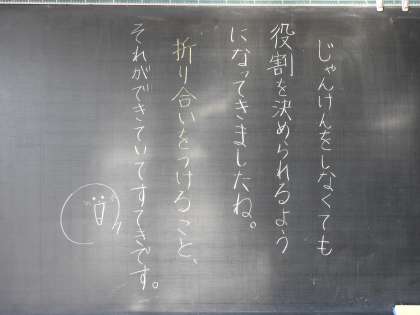 じゃんけんをしなくても
役割を決められるよう
になってきましたね。
折り合いをつけること、
それができていてすてきです。